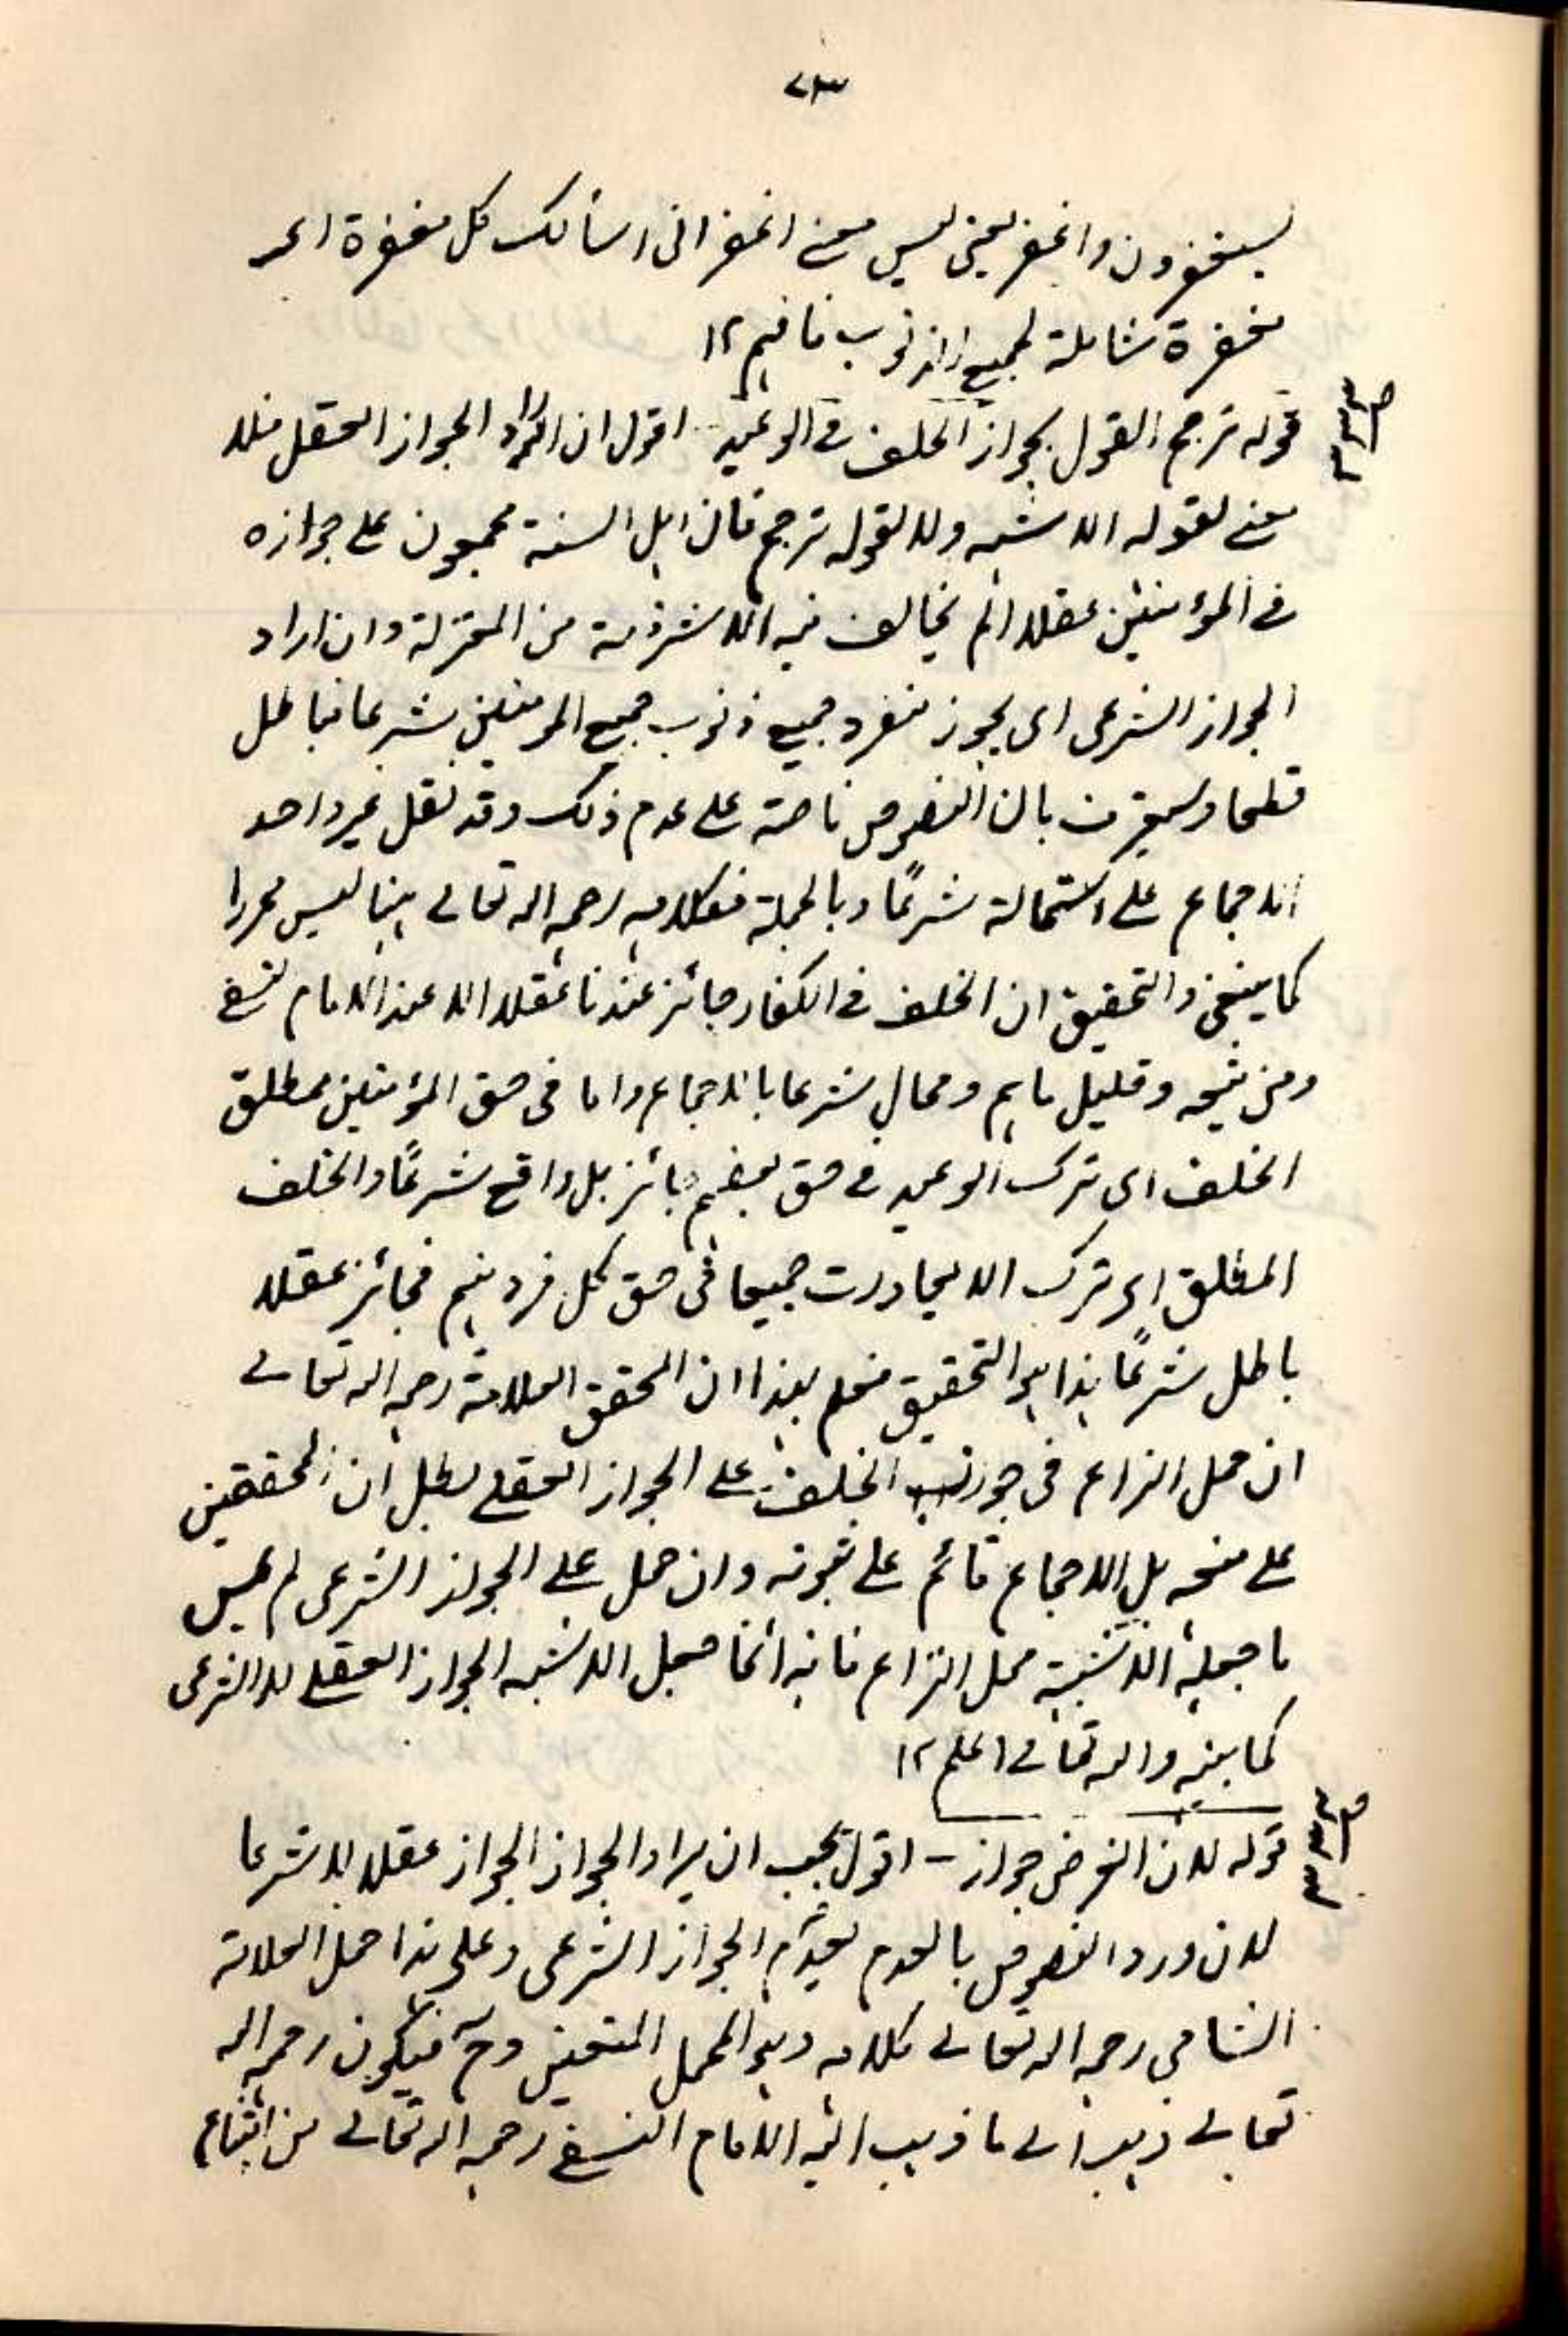 ٧٣
يستغفرون واغفر يعني ليس معنى اغفر اني اسألك كل مغفرة اى
مغفرة شاملة لجميع الذنوب فافهم ١٢
قوله ترجح القول بجواز الخلف في الوعيد - اقول ان اراد الجواز العقلي فلا
معنى لقوله الاشبه ولا لقوله ترجح فان اهل السنة مجمعون على جوازه
في المؤمنين عقلا لم يخالف فيه الا شرذمة من المعتزلة وان اراد
الجواز الشرعى اى يجوز جميع ذنوب جميع المؤمنين شرعا فباطل
قطعا وسيعترف بان النصوص ناصة على عدم ذلك وقد نقل غير واحد
الاجماع على استحالة شرعًا وبالجملة فكلامه رحمه الله تعالى ههنا ليس محررا
كما ينبغي والتحقيق ان الخلف في الكفار جائز عندنا عقلا الا عند الامام النسفي
ومن تبعه وقليل ما هم ومحال شرعا بالاجماع واما فى حق المؤمنين فمطلق
الخلف اى ترك الوعيد في حق بعضهم جائز بل واقع شرعًا والخلف
المطلق اى ترك الايعادات جميعا فى حق كل فرد منهم فجائز عقلا
باطل شرعًا هذا هو التحقيق فعلم بهذا ان المحقق العلامة رحمه الله تعالى
ان حمل النزاع فى جواز الخلف على الجواز العقلي بطل ان المحققين
على منعه بل الاجماع قائم على ثبوته وان حمل على الجواز الشرعى لم
ما جعله الاشبه محل النزاع فانه انما جعل الاشبه الجواز العقلي لا الشرعى
كما بينه والله تعالى اعلم ١٢
قوله لان الفرض جواز - اقول يجب ان يراد الجواز الجواز عقلا لا شرعا
لان ورود النصوص بالعدم يعدم الجواز الشرعى وعلى هذا حمل العلامة
الشامي رحمه الله تعالى كلامه وهو المحمل المتعين وح فيكون رحمه الله
تعالى ذهب الى ما ذهب اليه الامام النسفي رحمه الله تعالى من امتناع